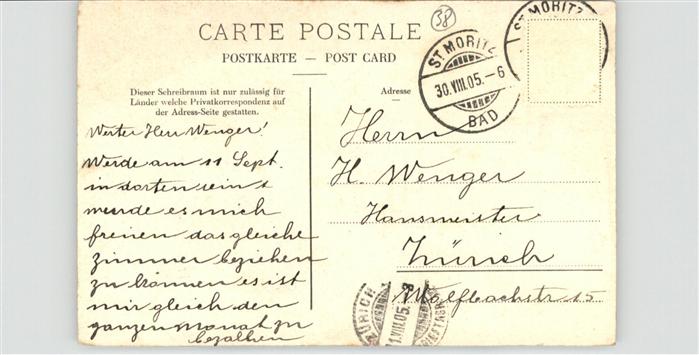 38
CARTE POSTALE
POSTKARTE — POST CARD
Dieser Schreibraum ist nur zulässig für
Länder welche Privatkorrespondenz auf
der Adress-Seite gestatten.
Adresse
ST. MORITZ
30.VIII.05.–6
BAD
ST. MORITZ
Werter Herr Wenger!
Werde am 11 Sept.
in dorten sein &
wurde es mich
freuen das gleiche
zimmer beziehen
zu können es ist
mir gleich den
ganzen Monat zu
bezalhen
Herrn
H. Wenger
Hausmeister
Zürich
Wolfbachstr 15
ZÜRICH
VIII.05. 8